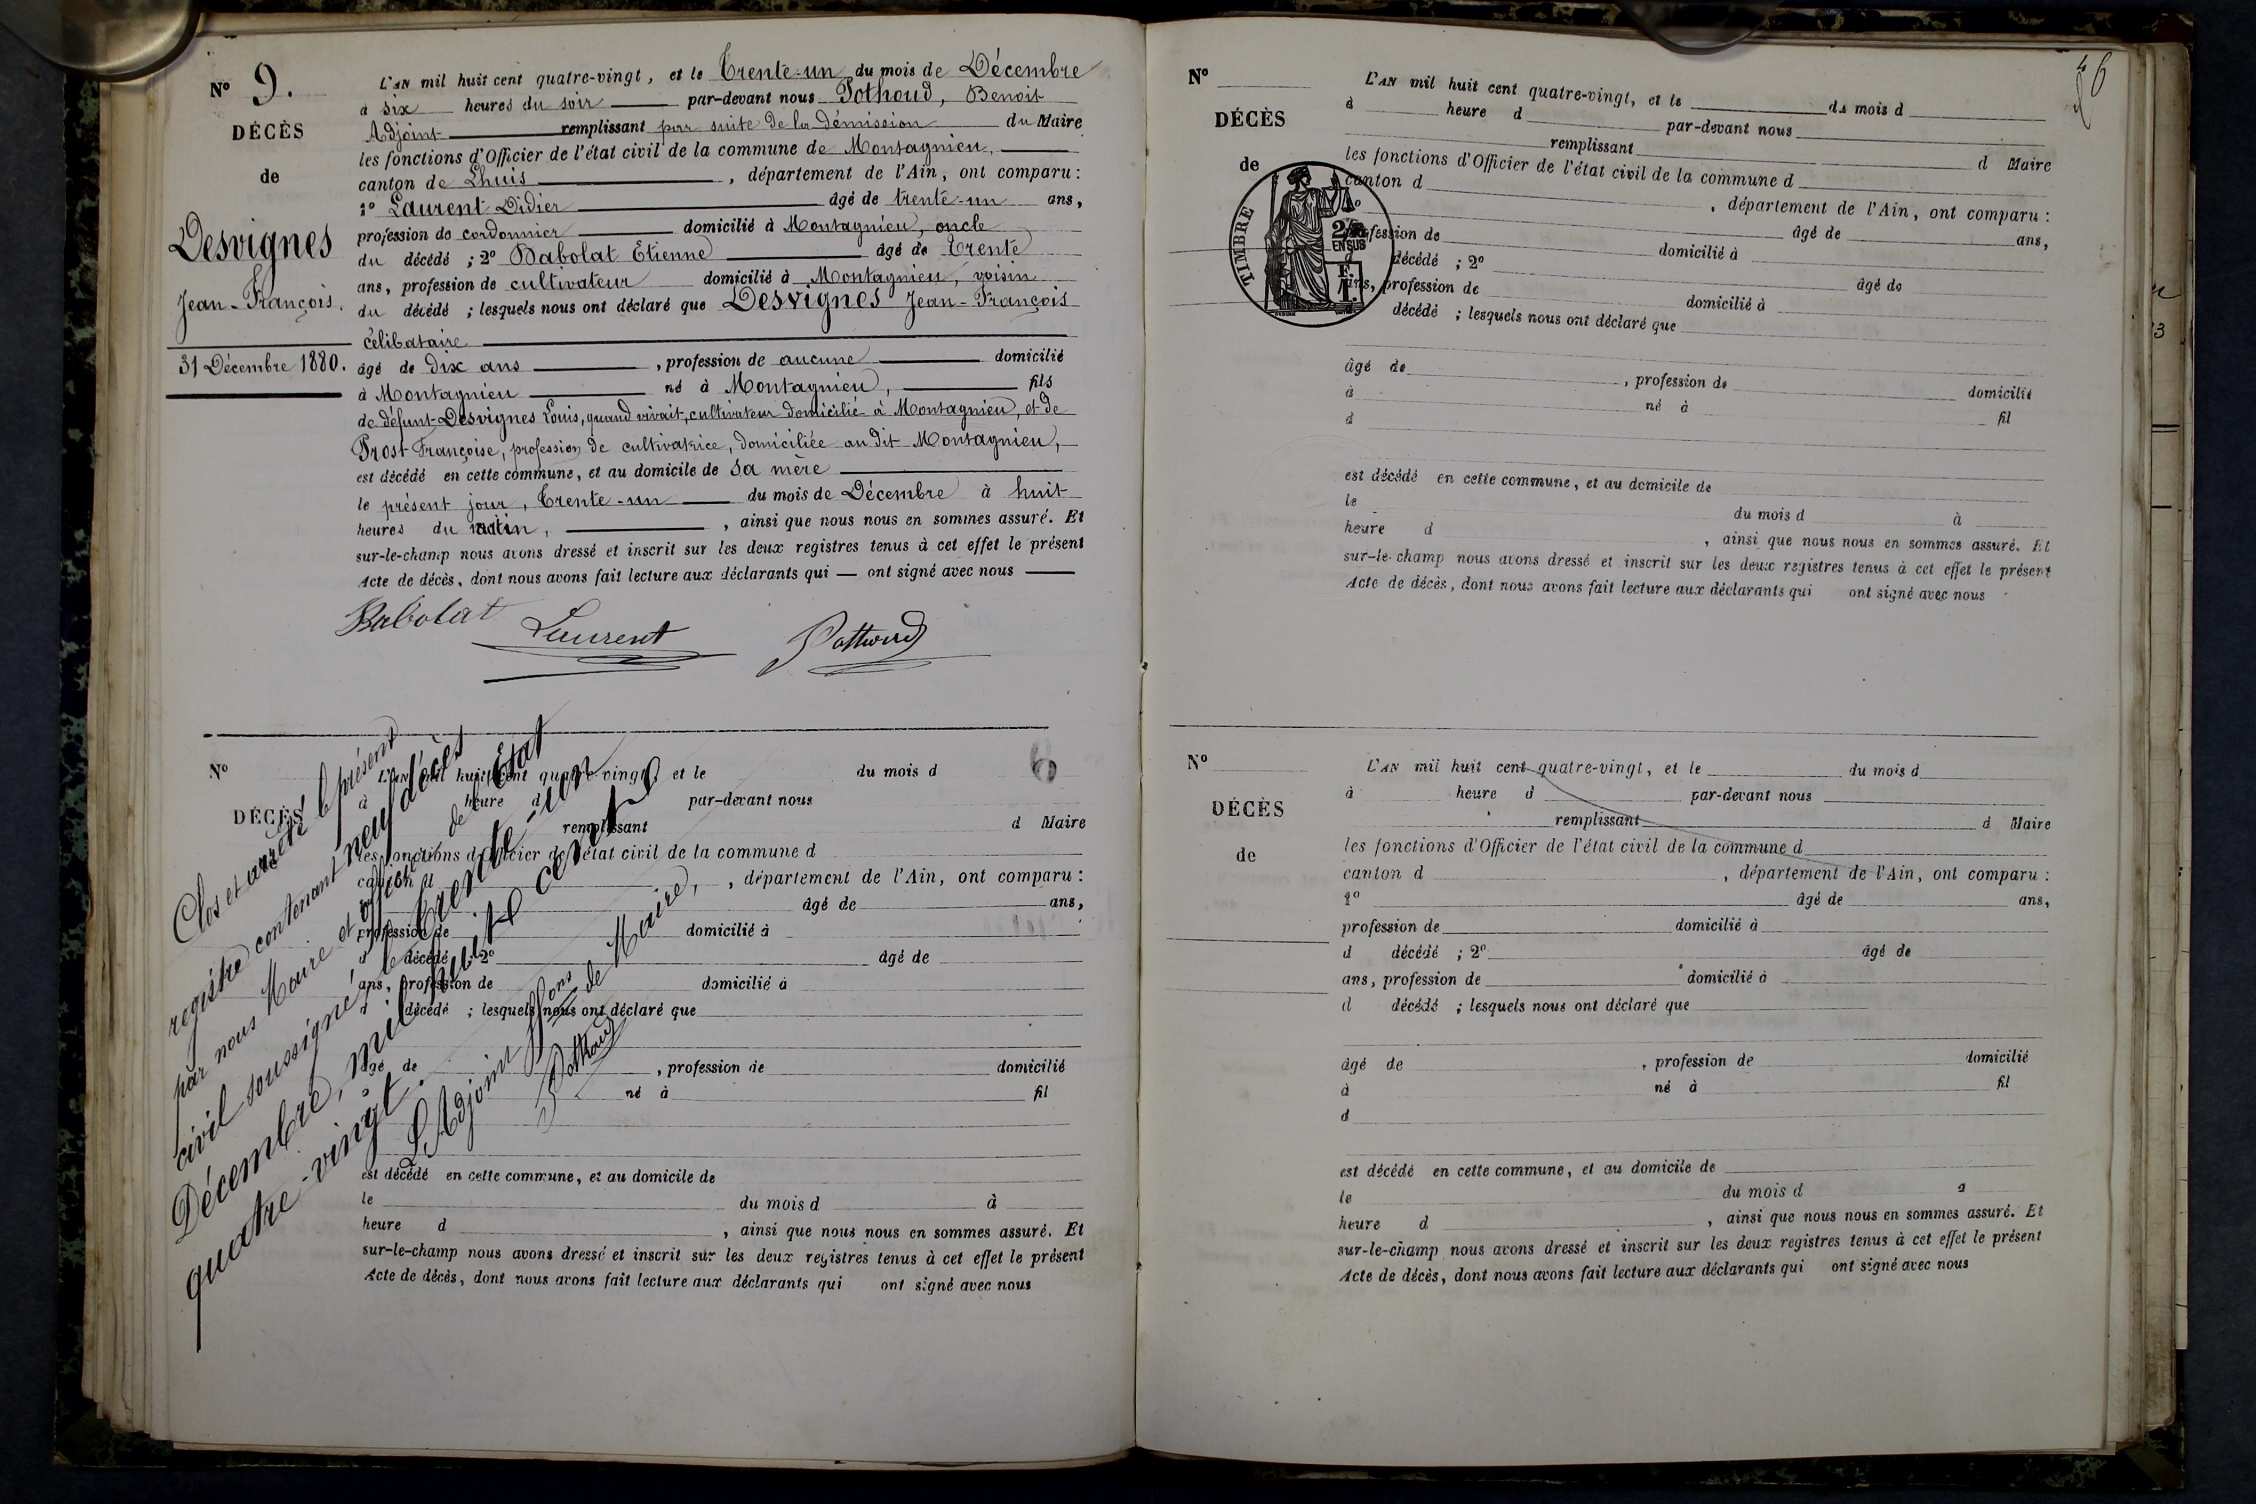 Nº 9.
DÉCÈS
de
Desvignes
Jean-François.
31 Décembre 1880.
L'AN mil huit cent quatre-vingt, et le Trente-un du mois de Décembre
à six heures du soir par-devant nous Pothoud, Benoit
Adjoint remplissant par suite de la démission du Maire
les fonctions d'Officier de l'état civil de la commune de Montagnieu,
canton de Lhuis, département de l'Ain, ont comparu :
1º Laurent Didier âgé de trente-un ans,
profession de cordonnier domicilié à Montagnieu, oncle
du décédé ; 2º Babolat Étienne âgé de Trente
ans, profession de cultivateur domicilié à Montagnieu, voisin
du décédé ; lesquels nous ont déclaré que Desvignes Jean-François
célibataire
âgé de dix ans, profession de aucune domicilié
à Montagnieu né à Montagnieu, fils
de défunt Desvignes Louis, quand vivait, cultivateur domicilié à Montagnieu, et de
Prost Françoise, profession de cultivatrice, domiciliée au dit Montagnieu,
est décédé en cette commune, et au domicile de sa mère
le présent jour, Trente-un du mois de Décembre à huit
heures du matin, ainsi que nous nous en sommes assuré. Et
sur-le-champ nous avons dressé et inscrit sur les deux registres tenus à cet effet le présent
Acte de décès, dont nous avons fait lecture aux déclarants qui — ont signé avec nous
Babolat Laurent Pothoud
Nº
DÉCÈS
L'AN mil huit cent quatre-vingt, et le du mois d
à heure d par-devant nous
remplissant d Maire
les fonctions d'Officier de l'état civil de la commune d
canton d, département de l'Ain, ont comparu :
âgé de ans,
profession de domicilié à
d décédé ; 2º âgé de
ans, profession de domicilié à
d décédé ; lesquels nous ont déclaré que
âgé de, profession de domicilié
à né à fil
est décédé en cette commune, et au domicile de
le du mois d à
heure d, ainsi que nous nous en sommes assuré. Et
sur-le-champ nous avons dressé et inscrit sur les deux registres tenus à cet effet le présent
Acte de décès, dont nous avons fait lecture aux déclarants qui ont signé avec nous
6
Clos et arrêté le présent
registre contenant neuf décès
par nous Maire et officier de l'État
civil soussigné, le trente-un
Décembre, mil huit cent
quatre-vingt.
L'Adjoint ffons de Maire,
Pothoud
46
Nº
DÉCÈS
de
TIMBRE
2/10
EN SUS
L'AN mil huit cent quatre-vingt, et le du mois d
à heure d par-devant nous
remplissant d Maire
les fonctions d'Officier de l'état civil de la commune d
canton d, département de l'Ain, ont comparu :
âgé de ans,
profession de domicilié à
décédé ; 2º âgé de
ans, profession de domicilié à
décédé ; lesquels nous ont déclaré que
âgé de, profession de domicilié
à né à fil
d
est décédé en cette commune, et au domicile de
le du mois d à
heure d, ainsi que nous nous en sommes assuré. Et
sur-le-champ nous avons dressé et inscrit sur les deux registres tenus à cet effet le présent
Acte de décès, dont nous avons fait lecture aux déclarants qui ont signé avec nous
Nº
DÉCÈS
de
L'AN mil huit cent quatre-vingt, et le du mois d
à heure d par-devant nous
remplissant d Maire
les fonctions d'Officier de l'état civil de la commune d
canton d, département de l'Ain, ont comparu :
1º âgé de ans,
profession de domicilié à
d décédé ; 2º âgé de
ans, profession de domicilié à
d décédé ; lesquels nous ont déclaré que
âgé de, profession de domicilié
à né à fil
d
est décédé en cette commune, et au domicile de
le du mois d à
heure d, ainsi que nous nous en sommes assuré. Et
sur-le-champ nous avons dressé et inscrit sur les deux registres tenus à cet effet le présent
Acte de décès, dont nous avons fait lecture aux déclarants qui ont signé avec nous